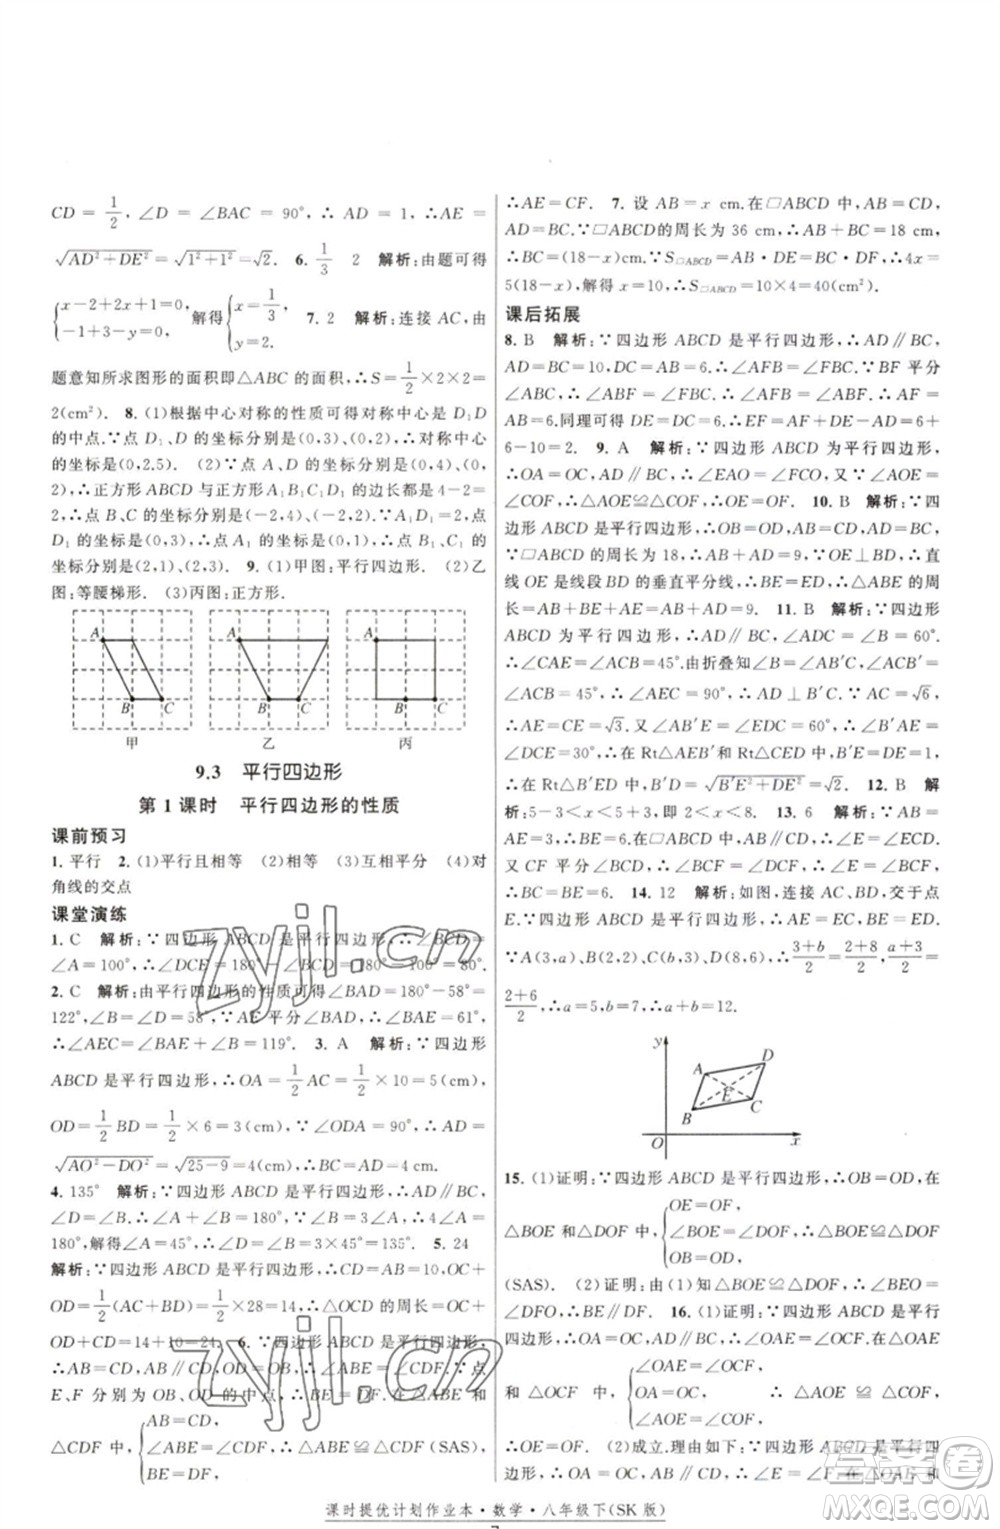 CD = 1/2, ∠D = ∠BAC = 90°, ∴ AD = 1, ∴ AE =
√AD²+DE² = √1²+1² = √2. 6. 1/3 2 解析:由题可得
{x-2+2x+1=0, y-4+1+y=0, 解得 {x=1/3, y=2. 7. 2 解析:连接 AC,由
题意知所求图形的面积即△ABC 的面积,∴S=1/2×2×2=
2(cm²). 8. (1)根据中心对称的性质可得对称中心是 D₁D
的中点.∵D₁、D 的坐标分别是(0,3)、(0,2),∴对称中心
的坐标是(0,2.5). (2)∵点 A、D 的坐标分别是(0,4)、(0,
2),∴正方形 ABCD 与正方形 A₁B₁C₁D₁ 的边长都是 4-2=
2,∴点 B、C 的坐标分别是(-2,4)、(-2,2).∵A₁D₁=2,点
D₁ 的坐标是(0,3),∴点 A₁ 的坐标是(0,1),∴点 B₁、C₁ 的坐
标分别是(2,1)、(2,3). 9. (1)甲图:平行四边形. (2)乙
图:等腰梯形. (3)丙图:正方形.
A B C A B C A B C
甲 乙 丙
9.3 平行四边形
第 1 课时 平行四边形的性质
课前预习
1. 平行 2. (1)平行且相等 (2)相等 (3)互相平分 (4)对
角线的交点
课堂演练
1. C 解析:∵四边形 ABCD 是平行四边形,∴∠BCD=
∠A=100°,∴∠DCE=180°-∠BCD=180°-100°=80°.
2. C 解析:由平行四边形的性质可得∠BAD=180°-58°=
122°,∠B=∠D=58°.∵AE 平分∠BAD,∴∠BAE=61°,
∴∠AEC=∠BAE+∠B=119°. 3. A 解析:∵四边形
ABCD 是平行四边形,∴OA=1/2 AC=1/2×10=5(cm),
OD=1/2 BD=1/2×6=3(cm).∵∠ODA=90°,∴AD=
√AO²-DO²=√25-9=4(cm),∴BC=AD=4 cm.
4. 135° 解析:∵四边形 ABCD 是平行四边形,∴AD∥BC,
∠D=∠B,∴∠A+∠B=180°,∵∠B=3∠A,∴4∠A=
180°,解得∠A=45°,∴∠D=∠B=3×45°=135°. 5. 24
解析:∵四边形 ABCD 是平行四边形,∴CD=AB=10,OC+
OD=1/2(AC+BD)=1/2×28=14,∴△OCD 的周长=OC+
OD+CD=14+10=24. 6. ∵四边形 ABCD 是平行四边形,
∴AB∥CD,AB=CD,OB=OD,∴∠ABE=∠CDF.∵点
E、F 分别为 OB、OD 的中点,∴BE=DF.在△ABE 和
△CDF 中,{AB=CD, ∠ABE=∠CDF, BE=DF, ∴△ABE≌△CDF(SAS),
∴AE=CF. 7. 设 AB=x cm.在□ABCD 中,AB=CD,
AD=BC.∵□ABCD 的周长为 36 cm,∴AB+BC=18 cm,
∴BC=(18-x)cm.∵S□ABCD=AB·DE=BC·DF,∴4x=
5(18-x),解得 x=10,∴S□ABCD=10×4=40(cm²).
课后拓展
8. B 解析:∵四边形 ABCD 是平行四边形,∴AD∥BC,
AD=BC=10,DC=AB=6,∴∠AFB=∠FBC.∵BF 平分
∠ABC,∴∠ABF=∠FBC,∴∠ABF=∠AFB,∴AF=
AB=6.同理可得 DE=DC=6,∴EF=AF+DE-AD=6+
6-10=2. 9. A 解析:∵四边形 ABCD 为平行四边形,
∴OA=OC,AD∥BC,∴∠EAO=∠FCO,又∵∠AOE=
∠COF,∴△AOE≌△COF,∴OE=OF. 10. B 解析:∵四
边形 ABCD 是平行四边形,∴OB=OD,AB=CD,AD=BC,
∵平行四边形的周长为 18,∴AB+AD=9,∵OE⊥BD,∴直
线 OE 是线段 BD 的垂直平分线,∴BE=DE,∴△ABE 的周
长=AB+AE+BE=AB+AD=9. 11. B 解析:∵四边形
ABCD 为平行四边形,∴AD∥BC,∠ADC=∠B=60°,
∴∠CAE=∠ACB=45°.由折叠知∠ACB′=∠ACB=45°,
∠B′=∠B=60°,∴∠AEC=90°,∴AD⊥B′C.∵AC=√6,
∴AE=CE=√3.又∵∠AB′E=∠EDC=60°,∴∠B′AE=
∠DCE=30°,∴在 Rt△AB′E 和 Rt△CED 中,可得 B′E=
DE=1,∴在 Rt△B′DE 中,B′D=√B′E²+DE²=√2. 12. B 解
析:5-3<BC<5+3,即 2<BC<8. 13. 6 解析:∵AB=AE=
3,∴∠ABE=∠AEB.∵AB∥CD,∴∠ABE=∠CFE.
又 CF 平分∠BCD,∴∠BCF=∠DCF,∴BE=CE=
3,∴AD=BC=6. 14. 12 解析:如图,连接 AC、BD,交于点
E.∵四边形 ABCD 是平行四边形,∴AE=CE,BE=ED.
∵A(3,a)、B(2,2)、C(b,3)、D(8,6),∴(3+b)/2=(2+8)/2,(a+3)/2=
(2+6)/2,∴a=5,b=7,∴a+b=12.
y A D E B C O x
15. (1)证明:∵四边形 ABCD 是平行四边形,∴OB=OD,在
△BOE 和△DOF 中,{OE=OF, ∠BOE=∠DOF, OB=OD, ∴△BOE≌△DOF
(SAS). (2)证明:由(1)知△BOE≌△DOF,∴∠BEO=
∠DFO,∴BE∥DF. 16. (1)证明:∵四边形 ABCD 是平行
四边形,∴OA=OC,AB∥CD,∴∠OAE=∠OCF,在△OAE
和△OCF 中,{∠OAE=∠OCF, OA=OC, ∠AOE=∠COF, ∴△OAE≌△OCF(ASA),
∴OE=OF. (2)成立.理由如下:∵四边形 ABCD 是平行四
边形,∴OA=OC,AB∥CD,∴∠E=∠F,在△OAE 和△OCF
课时提优计划作业本·数学·八年级下(SK 版)
zyjl.cn
zyjl.cn
MXQE.COM